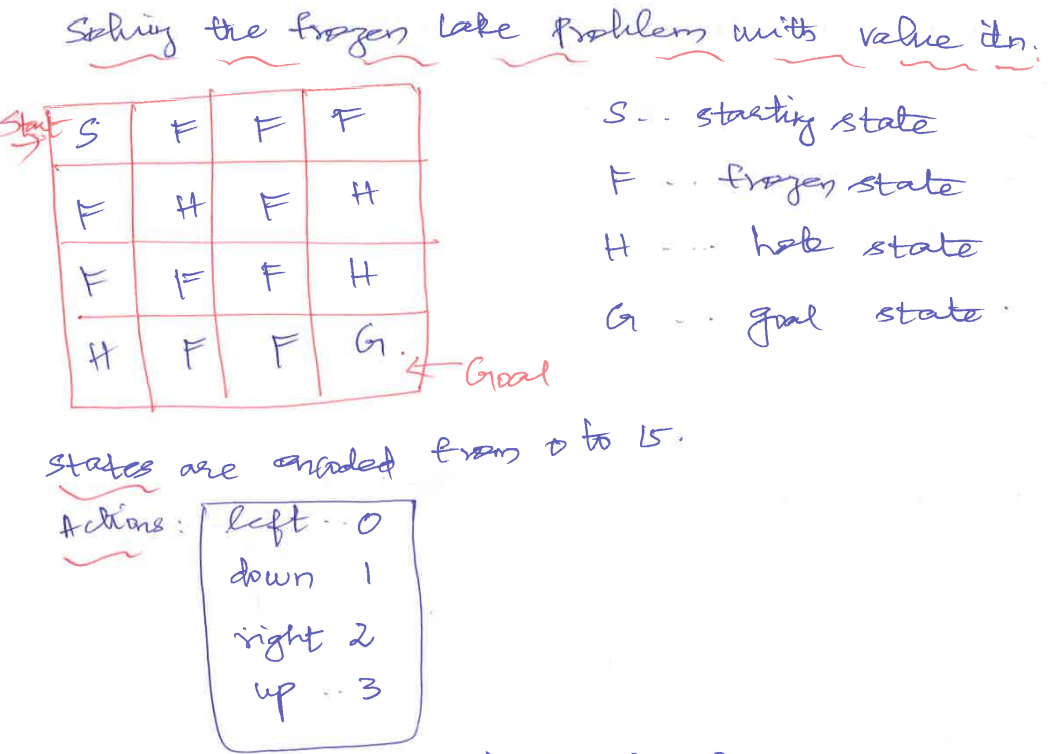 Solving the frozen lake Problem with value itn.
Start S F F F
F H F H
F F F H
H F F G.
Goal
S... starting state
F .. frozen state
H ... hole state
G .. goal state.
states are encoded from 0 to 15.
Actions: left .. 0
down 1
right 2
up .. 3